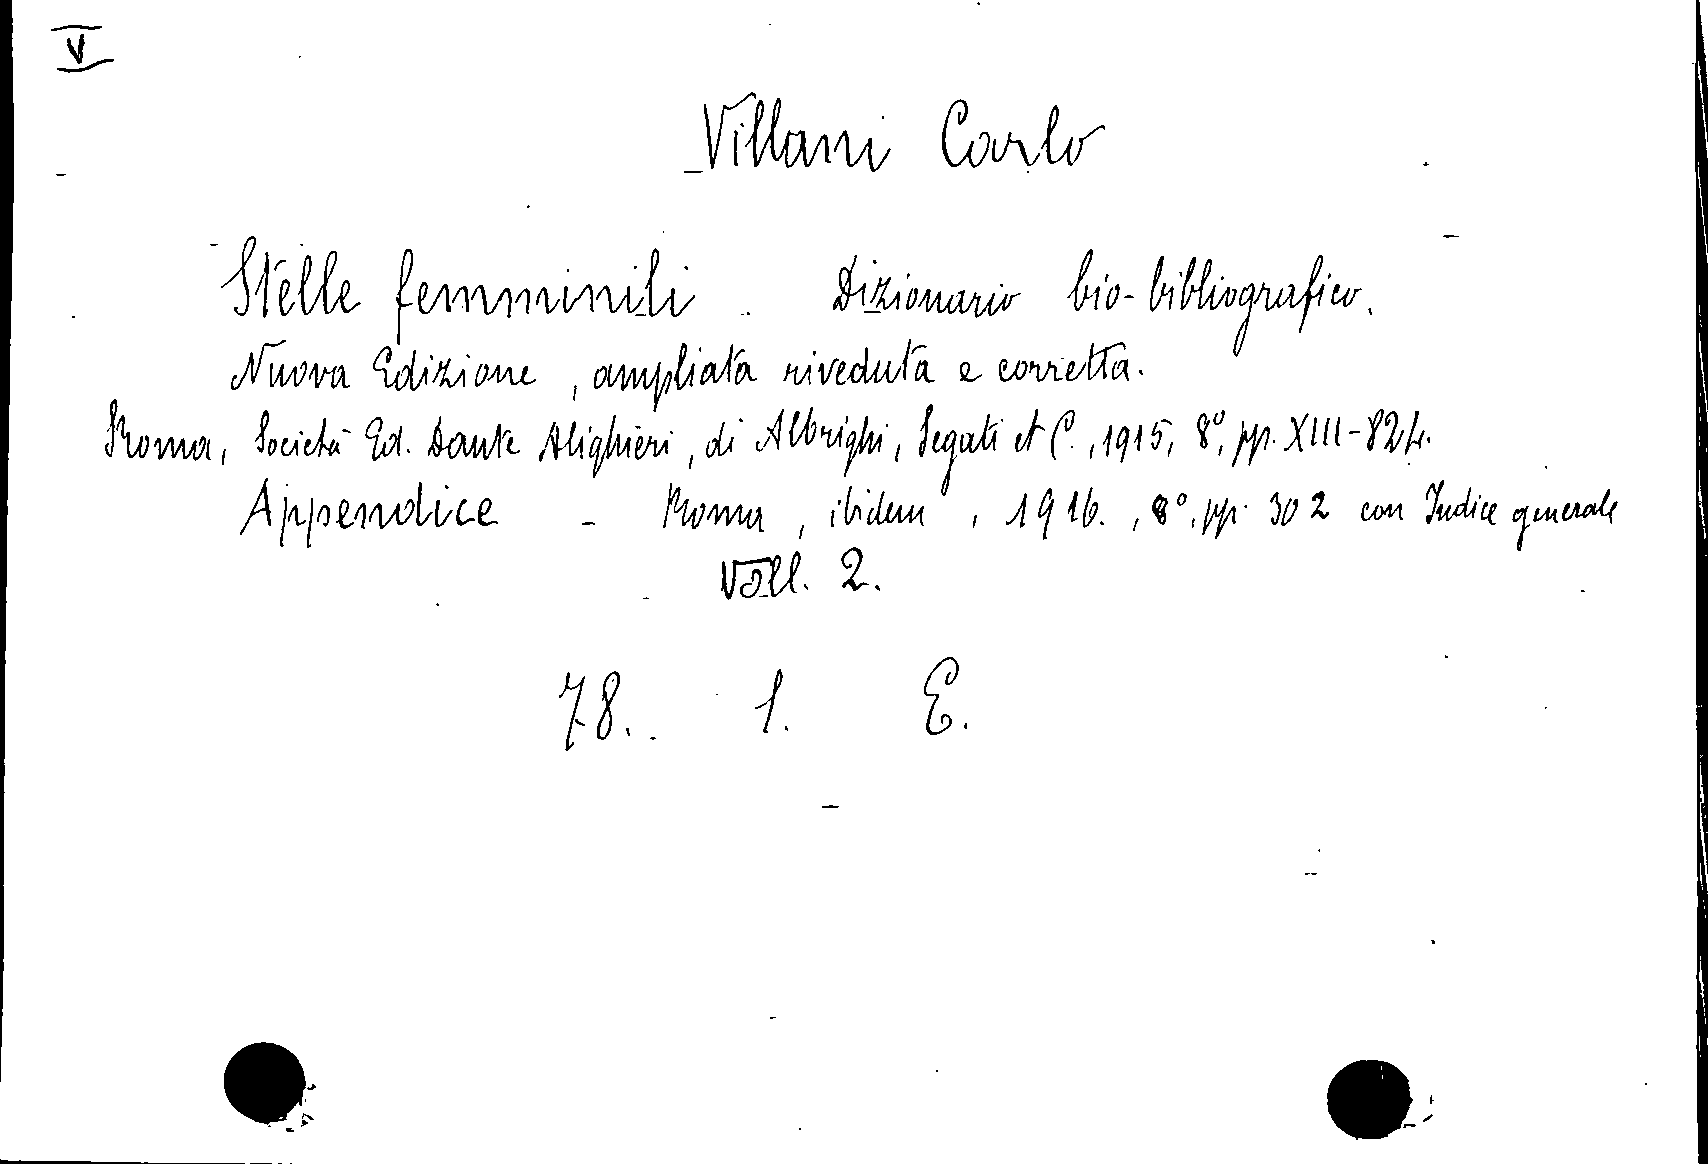 V
Villani Carlo
Stelle femminili. Dizionario bio-bibliografico.
Nuova Edizione, ampliata riveduta e corretta.
Roma, Società Ed. Dante Alighieri, di Albrighi, Segati et C., 1915, 8°, pp. XIII-824.
Appendice - Roma, ibidem, 1916., 8°, pp. 302 con Indice generale
Voll. 2.
78. 1. E.